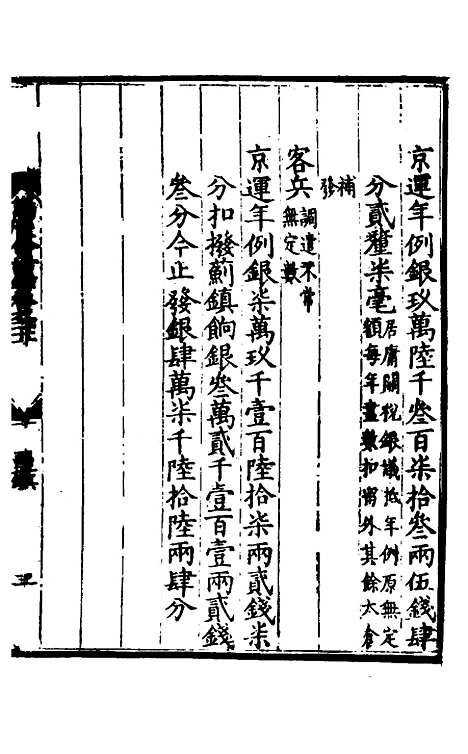 京運年例銀玖萬陸千叁百柒拾叁兩伍錢肆
分貳釐柒毫居庸關稅銀議抵年例原無定
額每年盡數扣留外其餘太倉
補
發
客兵調遣不常
無定數
京運年例銀柒萬玖千壹百陸拾柒兩貳錢柒
分扣撥薊鎮餉銀叁萬貳千壹百壹兩貳錢
叁分今止發銀肆萬柒千陸拾陸兩肆分